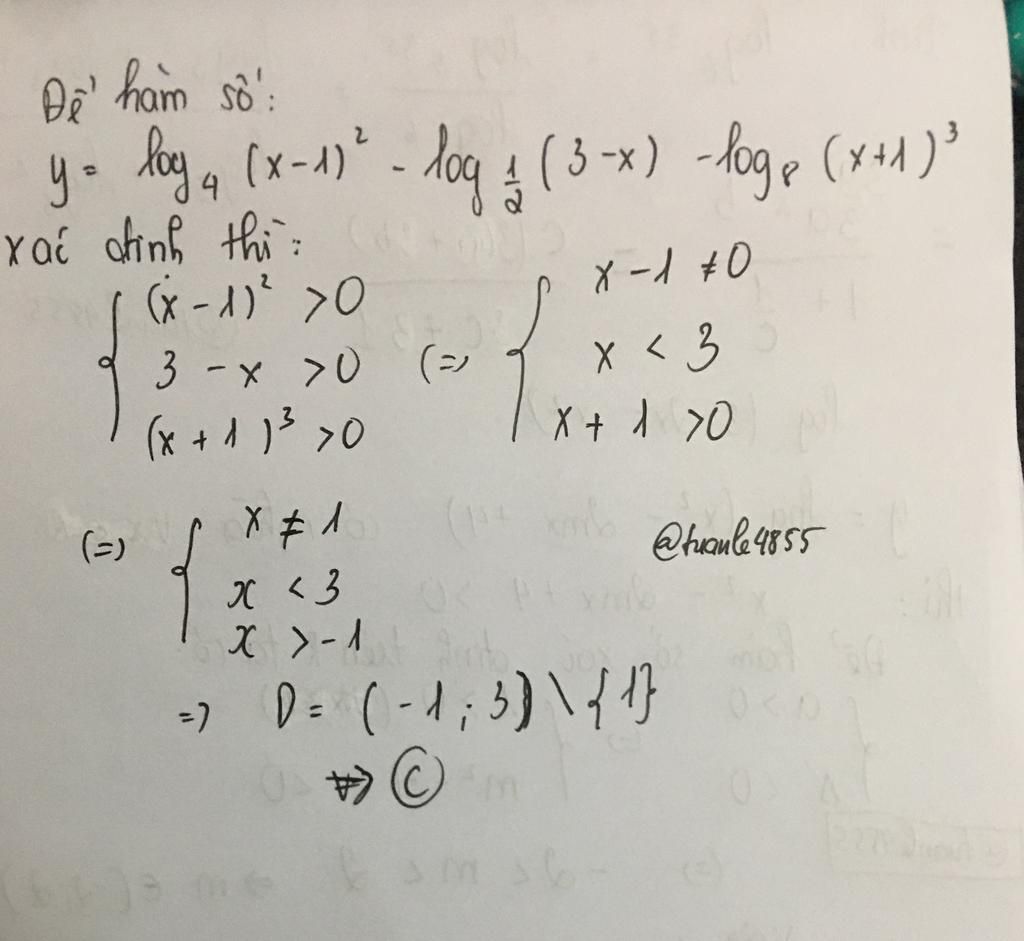 Để hàm số:
y = log₄ (x-1)² - log ½ (3-x) - log₈ (x+1)³
xác định thì:
{ (x-1)² >0 { x-1 ≠0
3 - x >0 (=) x < 3
(x+1)³ >0 x + 1 >0
(=) { x ≠ 1 @tuanle4855
x < 3
x > -1
=) D = (-1; 3) \ {1}
=> C